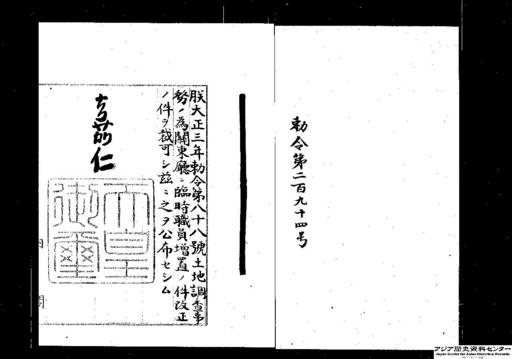 勅令第二百九十四号
朕大正三年勅令第八十八號土地調査事
務ノ為關東廳ニ臨時職員増置ノ件改正
ノ件ヲ裁可シ茲ニ之ヲ公布セシム
嘉仁
天皇
御璽
アジア歴史資料センター
Japan Center for Asian Historical Records